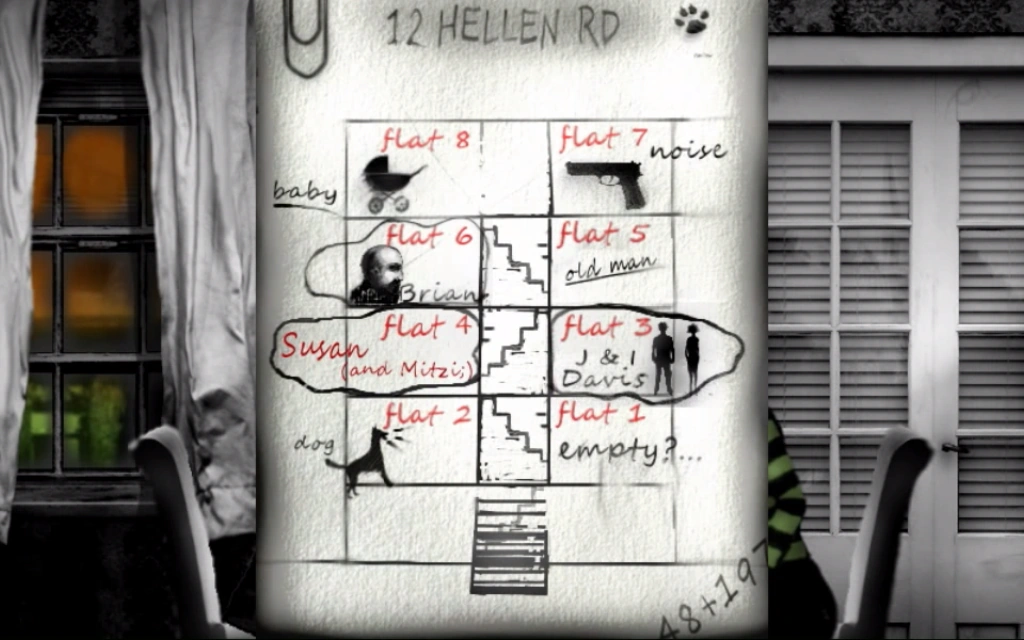 12 HELLEN RD
flat 8
flat 7
noise
baby
flat 6
flat 5
old man
Brian
flat 4
flat 3
Susan
(and Mitzi;)
J & I
Davis
flat 2
flat 1
dog
empty?...
48+197